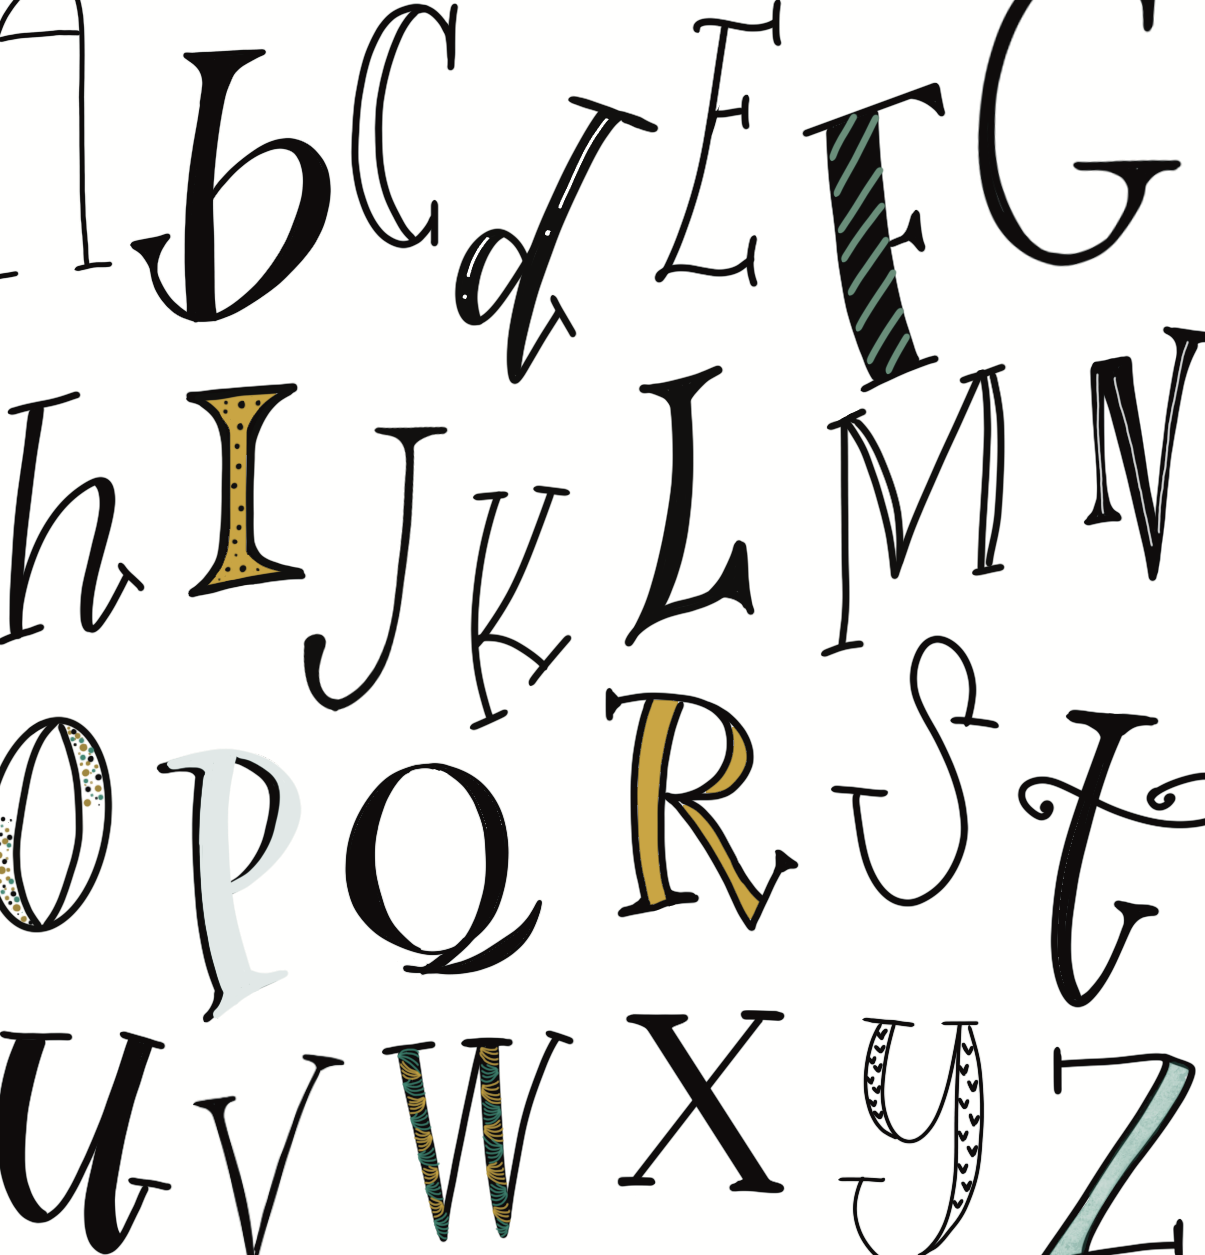 A b C d E F G
h I J K L M N
O P Q R S t
u V W X y Z